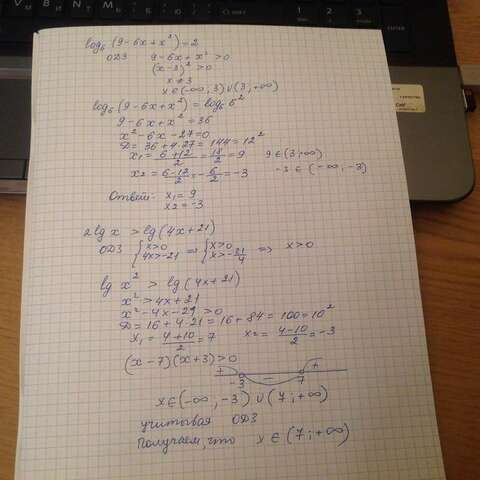 log₆(9-6x+x²)=2
ОДЗ 9-6x+x²>0
(x-3)²>0
x≠3
x∈(-∞,3)∪(3,+∞)
log₆(9-6x+x²)=log₆6²
9-6x+x²=36
x²-6x-27=0
D=36+4·27=144=12²
x₁=(6+12)/2=18/2=9 9∈(3,∞)
x₂=(6-12)/2=-6/2=-3 -3∈(-∞,-3)
Ответ: x₁=9
x₂=-3
2lg x > lg(4x+21)
ОДЗ {x>0 ⇒ {x>0 ⇒ x>0
{4x>-21 {x>-21/4
lg x² > lg(4x+21)
x²>4x+21
x²-4x-21>0
D=16+4·21=16+84=100=10²
x₁=(4+10)/2=7 x₂=(4-10)/2=-3
(x-7)(x+3)>0
+ - +
-3 7
x∈(-∞,-3)∪(7;+∞)
учитывая ОДЗ
Получаем, что x∈(7;+∞)